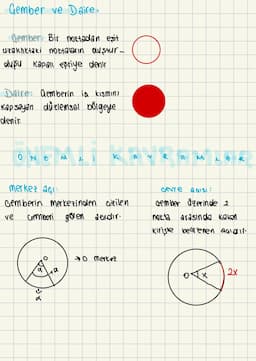 Çember ve Daire.
Çember: Bir noktadan eşit
uzaklıktaki noktaların oluştur-
duğu kapalı eğriye denir
Daire: Çemberin iç kısmını
kapsayan düzlemsel bölgeye
denir.
ÖNEMLİ KAVRAMLAR
merkez açı:
Çemberin merkezinden çizilen
ve çemberi gören açıdır.
O
α
α
→O merkez
çevre açısı:
Çember üzerinde 2
nokta arasında kalan
kirişle belirlenen açıdır.
O
x
2x